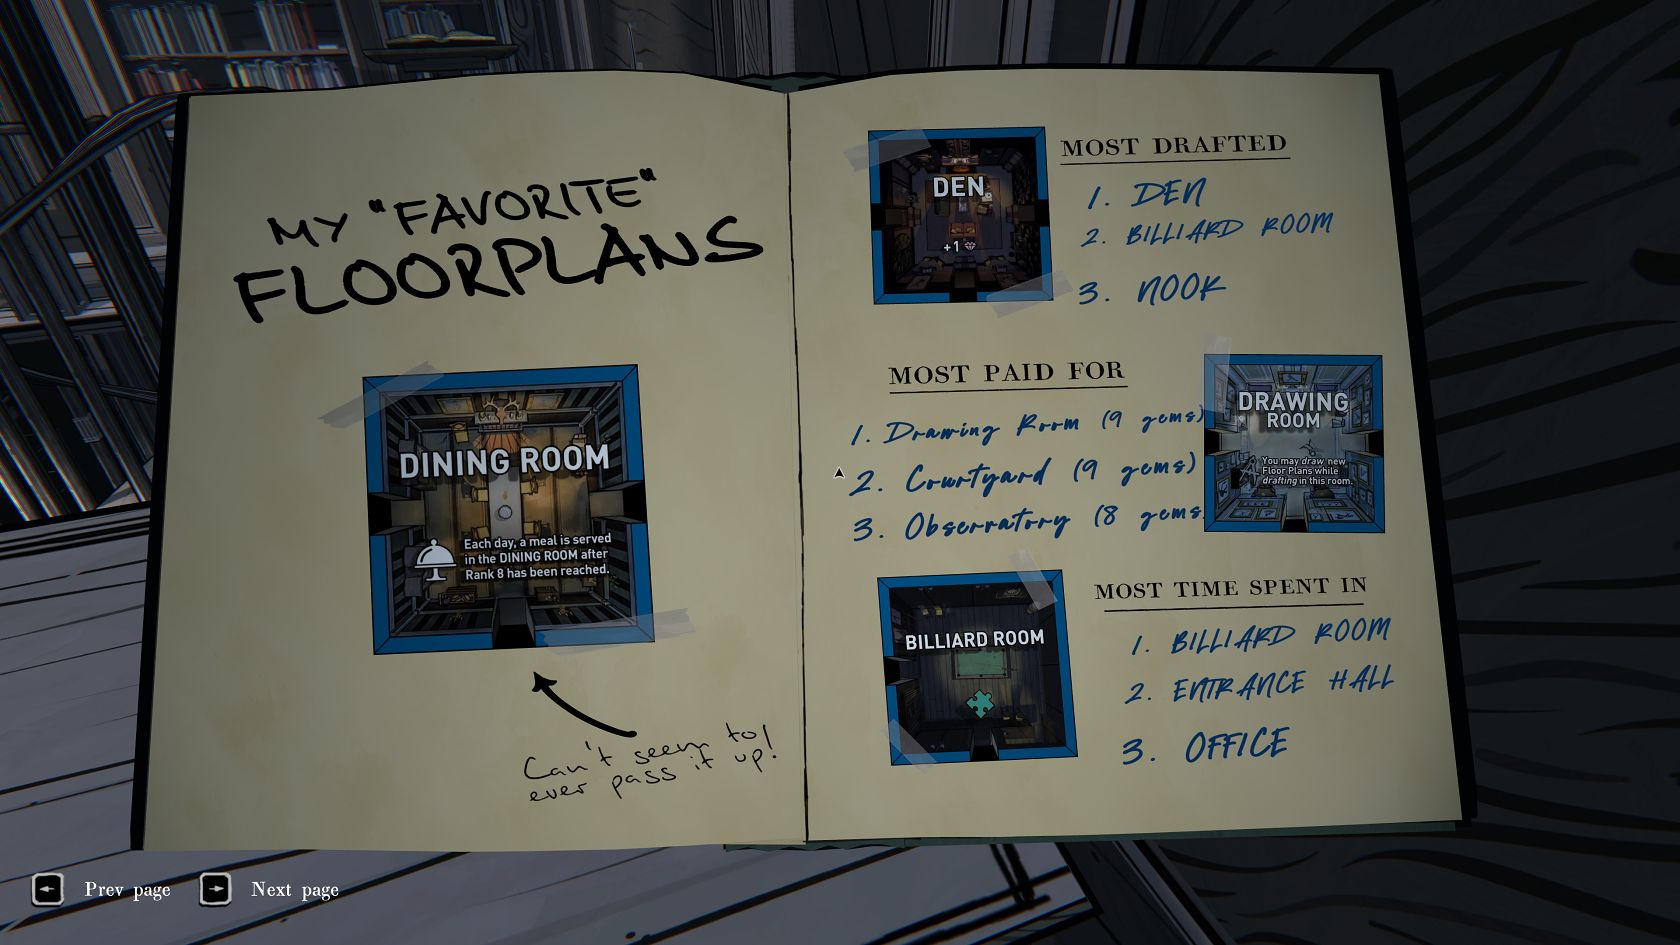 MY "FAVORITE"
FLOORPLANS
DINING ROOM
Each day, a meal is served
in the DINING ROOM after
Rank 8 has been reached.
Can't seem to
ever pass it up!
DEN
+1
MOST DRAFTED
1. DEN
2. BILLIARD ROOM
3. NOOK
MOST PAID FOR
1. Drawing Room (9 gems)
2. Courtyard (9 gems)
3. Observatory (8 gems
DRAWING
ROOM
You may draw new
Floor Plans while
drafting in this room.
BILLIARD ROOM
MOST TIME SPENT IN
1. BILLIARD ROOM
2. ENTRANCE HALL
3. OFFICE
Prev page
Next page